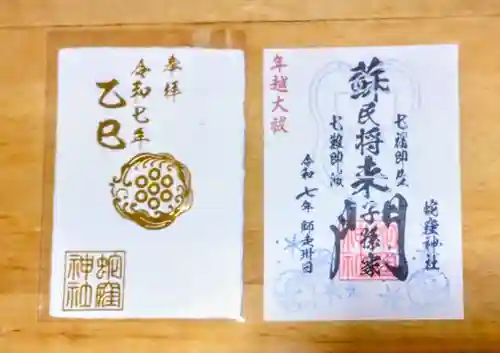 奉拝
令和七年
乙巳
蛇窪
神社
年越大祓
七福即生
蘇民将来子孫家門
七難即滅
令和七年師走卅日
蛇窪神社